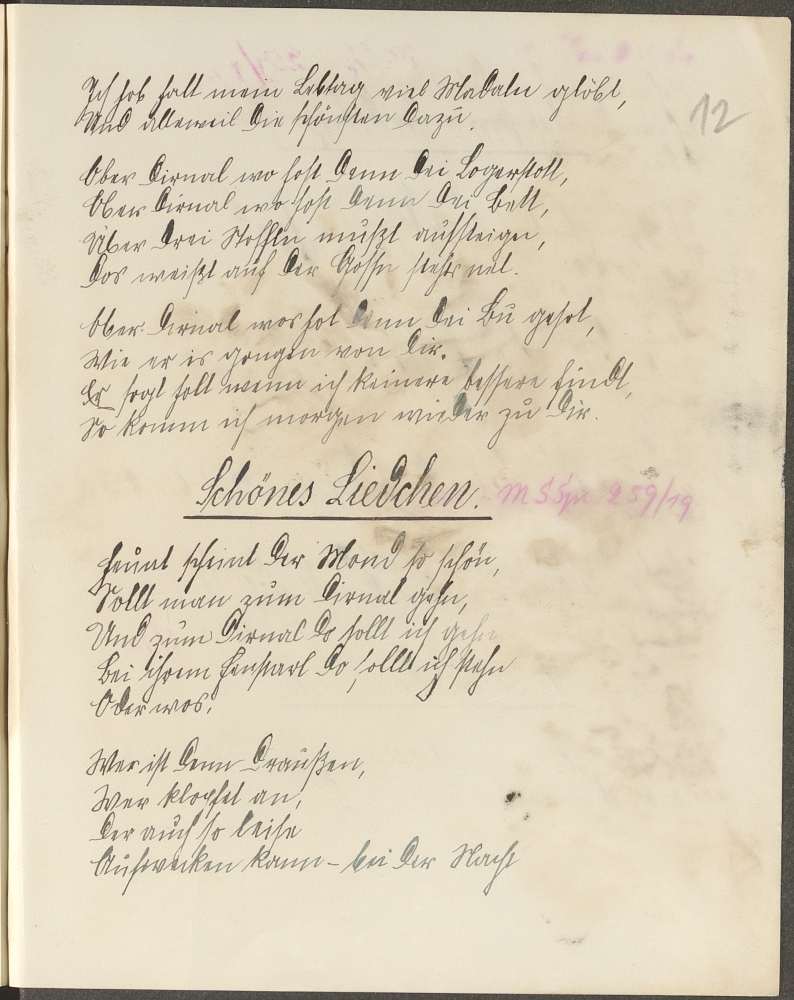 12
Ich hob halt mein Lebtag viel Madaln glöbt,
Und alleweil die schönsten dazu.
Ober Dirnal wo host denn dei Logerstott,
Ober Dirnal wo host denn dei Bett,
Über drei Stoffln mußt aufsteigen,
Dos weißt auf der Gossn stehts net.
Ober Dirnal wos hot denn dei Bu gesot,
Wie er is gongen von dir.
Er sogt holt wenn ich keinere bessere findt,
So komm ich morgen wieder zu dir.
Schönes Liedchen.
259/19
Heunt scheint der Mond so schön,
Sollt man zum Dirnal gehn,
Und zum Dirnal do sollt ich gehn
Bei ihrem Fenstarl do sollt ich stehn
Oder wos.
Wer ist denn draußen,
Wer klopfet an,
Der auch so leise
Aufwecken kann – bei der Nacht